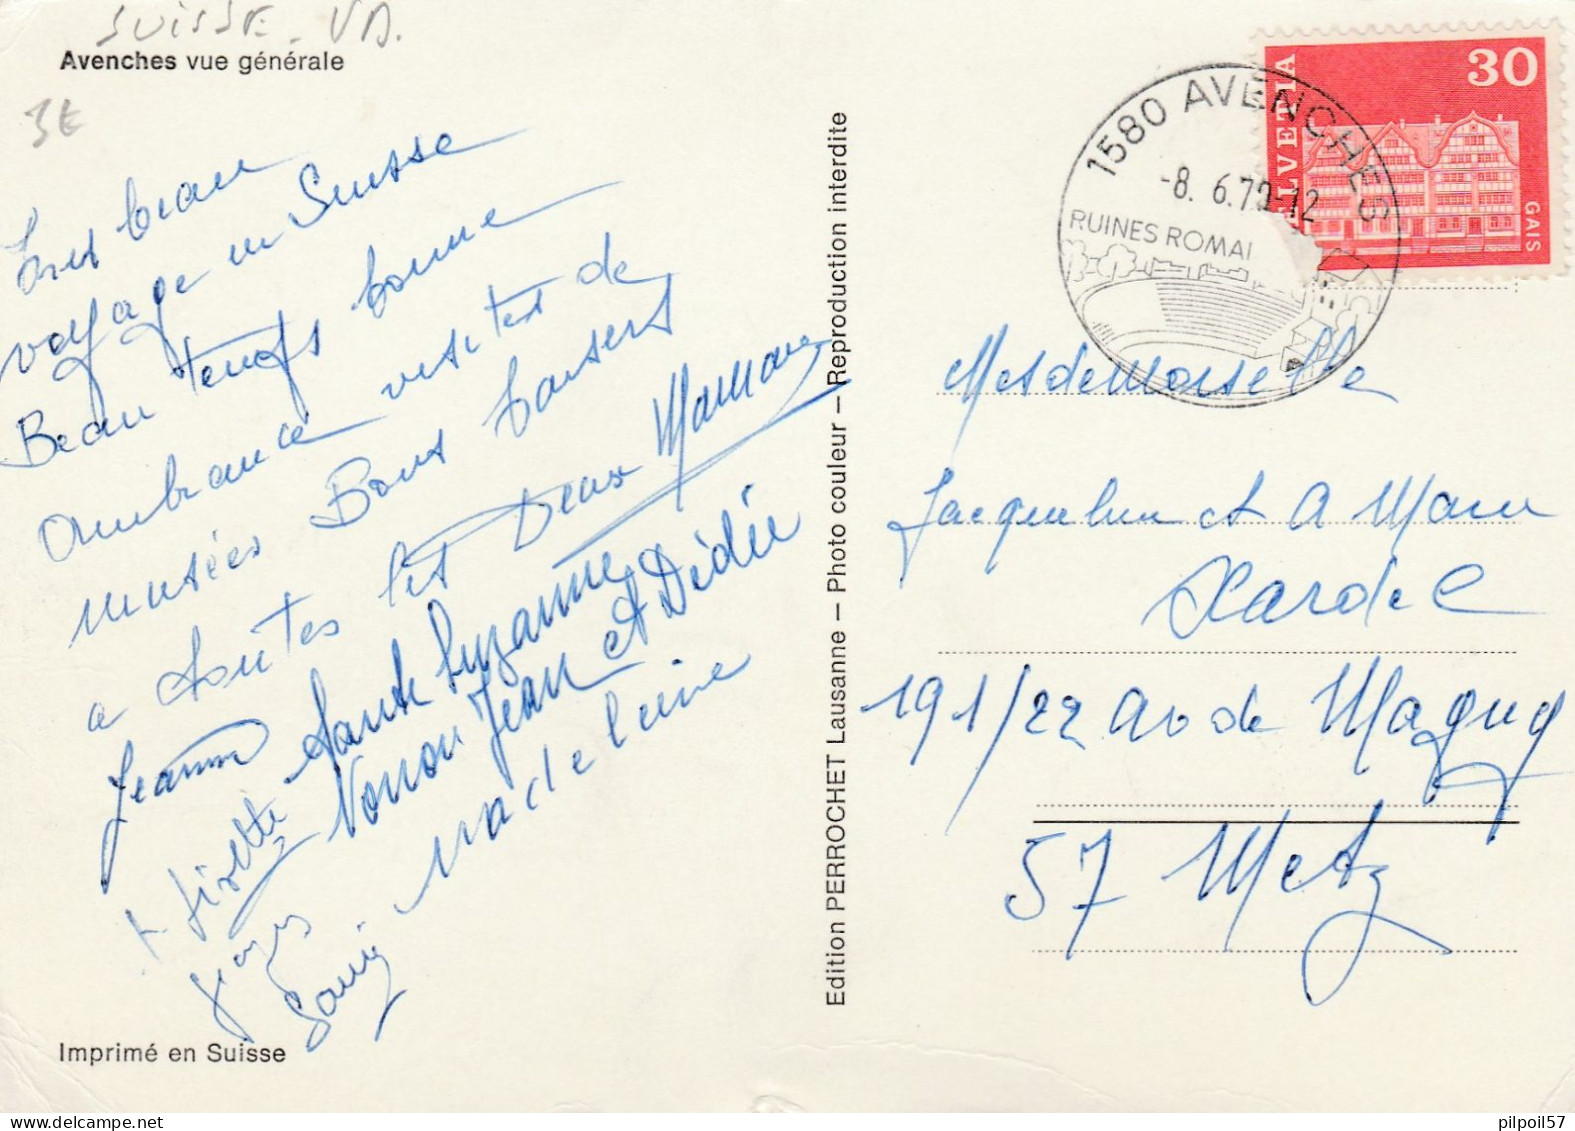 SUISSE - VD.
Avenches vue générale
3€
Très beau
voyage en Suisse
Beau temps bonne
Ambiance visites de
musées Bons baisers
a toutes les Deux Maman
Jeanne Tante Suzanne
Nonon Jean et Dédée
+ Lisette
Georges
Madeleine
Imprimé en Suisse
Edition PERROCHET Lausanne – Photo couleur – Reproduction interdite
1580 AVENCHES
-8. 6.70-12
RUINES ROMAI
HELVETIA
30
GAIS
Mesdemoiselle
Jacqueline et A Marie
191/22 Av de Magny
57 Metz
pilpoil57